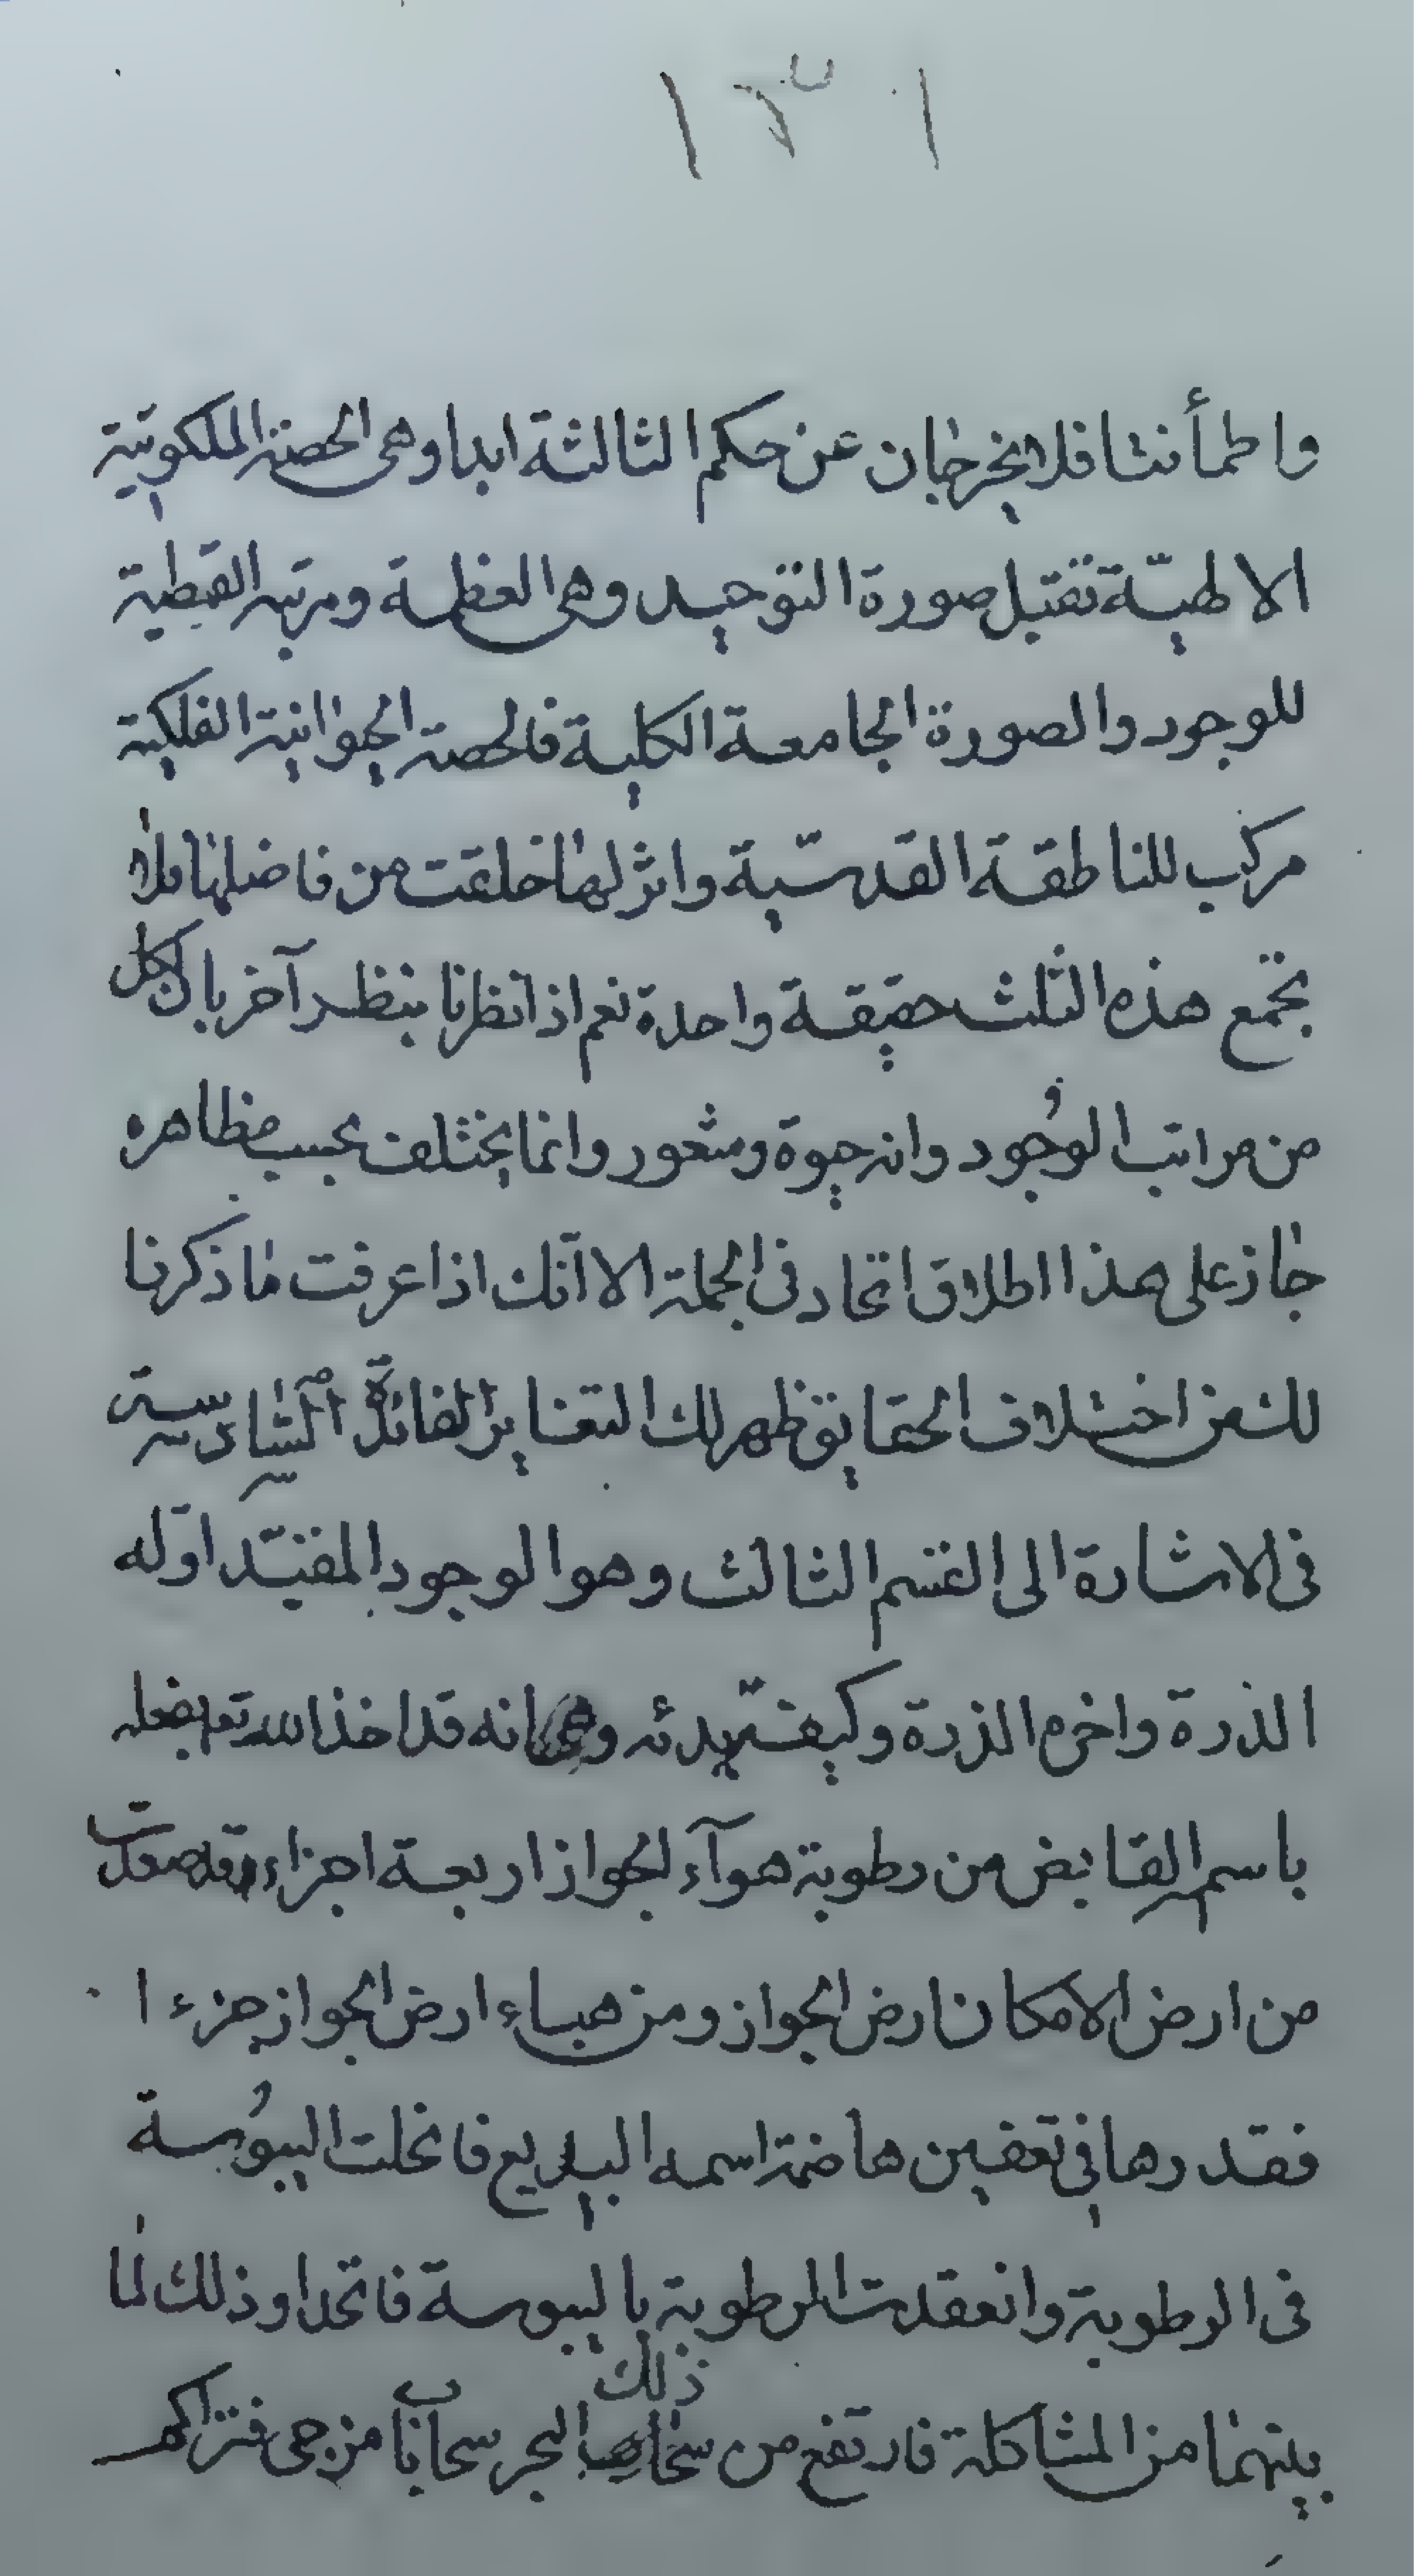 واطمأنتا فلا يخرجان عن حكم الثالثة ابدا وهى الحصة الملكوتية
الالهيّة تقبل صورة التوحيد وهى العظمة ومرتبه القبطية
للوجود والصورة الجامعة الكلية فالحصة الحيوانية الفلكية
مركب للناطقة القدسّية واثر لها خلقت من فاضلها فلا
تجمع هذه الثلث حقيقة واحدة نعم اذا نظرنا بنظر آخر بان لكل
من مراتب الوُجود وانه حيوة وشعور وانما يختلف بحسب مظاهره
جاز على هذا اطلاق اتحاد فى الجملة الا انّك اذا عرفت ما ذكرنا
لك من اختلاف الحقايق ظهر لك التغاير الفائدة السّادسة
فى الاشارة الى القسم الثالث وهو الوجود المقيّد اوّله
الذرة واخره الذرة وكيفيّة بدئه انه قد اخذ الله تعا بفعله
باسمه القابض من رطوبة هوآء الجواز اربعة اجزاء صعدت
من ارض الامكان ارض الجواز ومن هباء ارض الجواز جزءا
فقدرها فى تعفين هاضمة اسمه البديع فانحلت اليبُوسة
فى الرطوبة وانعقدت الرطوبة باليبوسة فاتحدا وذلك لما
بينهما من المشاكلة فارتفع من ذلك البحر سحابا مزجى فتراكم